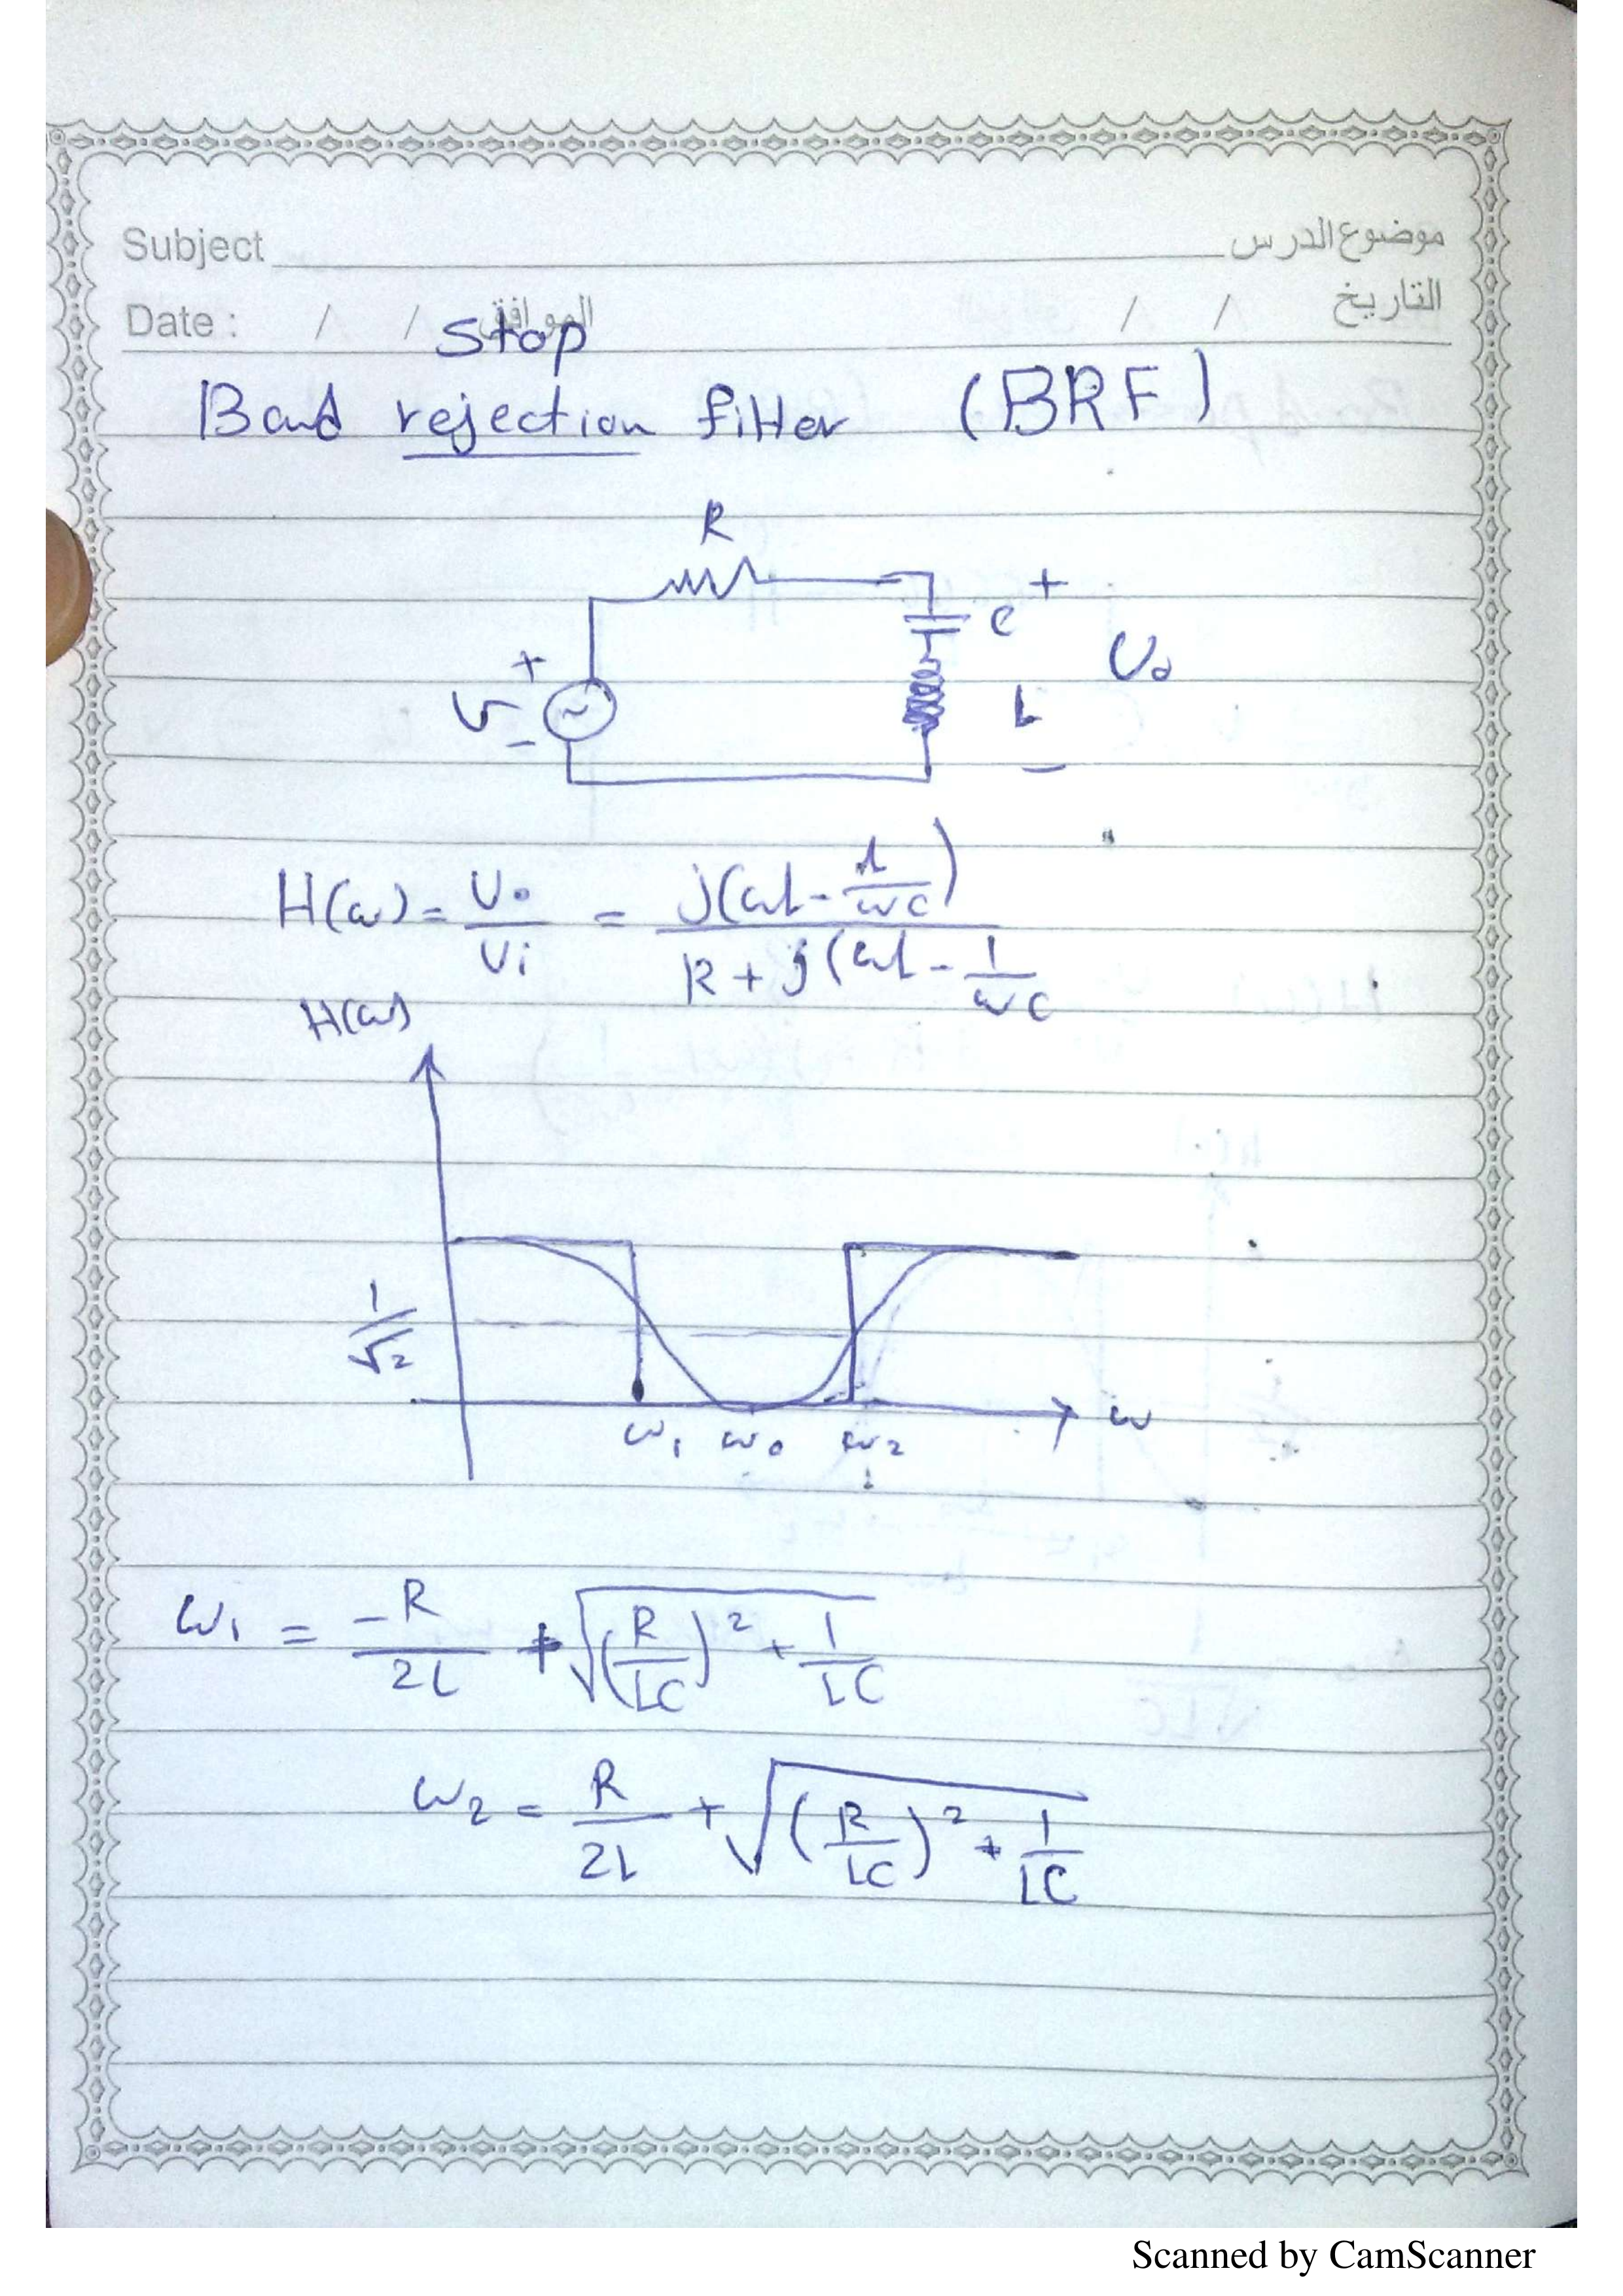 Subject موضوع الدرس
Date : / / الموافق / / التاريخ
Stop
Band rejection filter (BRF)
R
+ C +
Vi Vo
- L -
H(ω) = Vo/Vi = j(ωL - 1/ωC) / R + j(ωL - 1/ωC
H(ω)
1/√2
ω1 ω0 ω2 ω
ω1 = -R/2L + √(R/LC)² + 1/LC
ω2 = R/2L + √(R/LC)² + 1/LC
Scanned by CamScanner